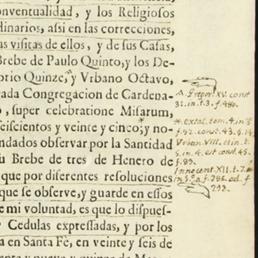 onventualidad, y los Religiosos
dinarios, asi en las correcciones,
as visitas de ellos, y de sus Casas,
Brebe de Paulo Quinto, y los De-
orio Quinze, y Vrbano Octavo,
rada Congregacion de Cardena-
o, super celebratione Misarum,
eiscientos y veinte y cinco; y no
ndados observar por la Santidad
u Brebe de tres de Henero de
que por diferentes resoluciones
que se observe, y guarde en essos
e mi voluntad, es que lo dispues-
Cedulas expressadas, y por los
a en Santa Fè, en veinte y seis de
A Gregor. XV. const
31. in t. 3. f.
extat tom. 4. in
f. 92. const. 43. g. 14
Vrban. VIII. in t.
5. in. 4. est const. 45.
f. 83.
Innocent XII. t. 7